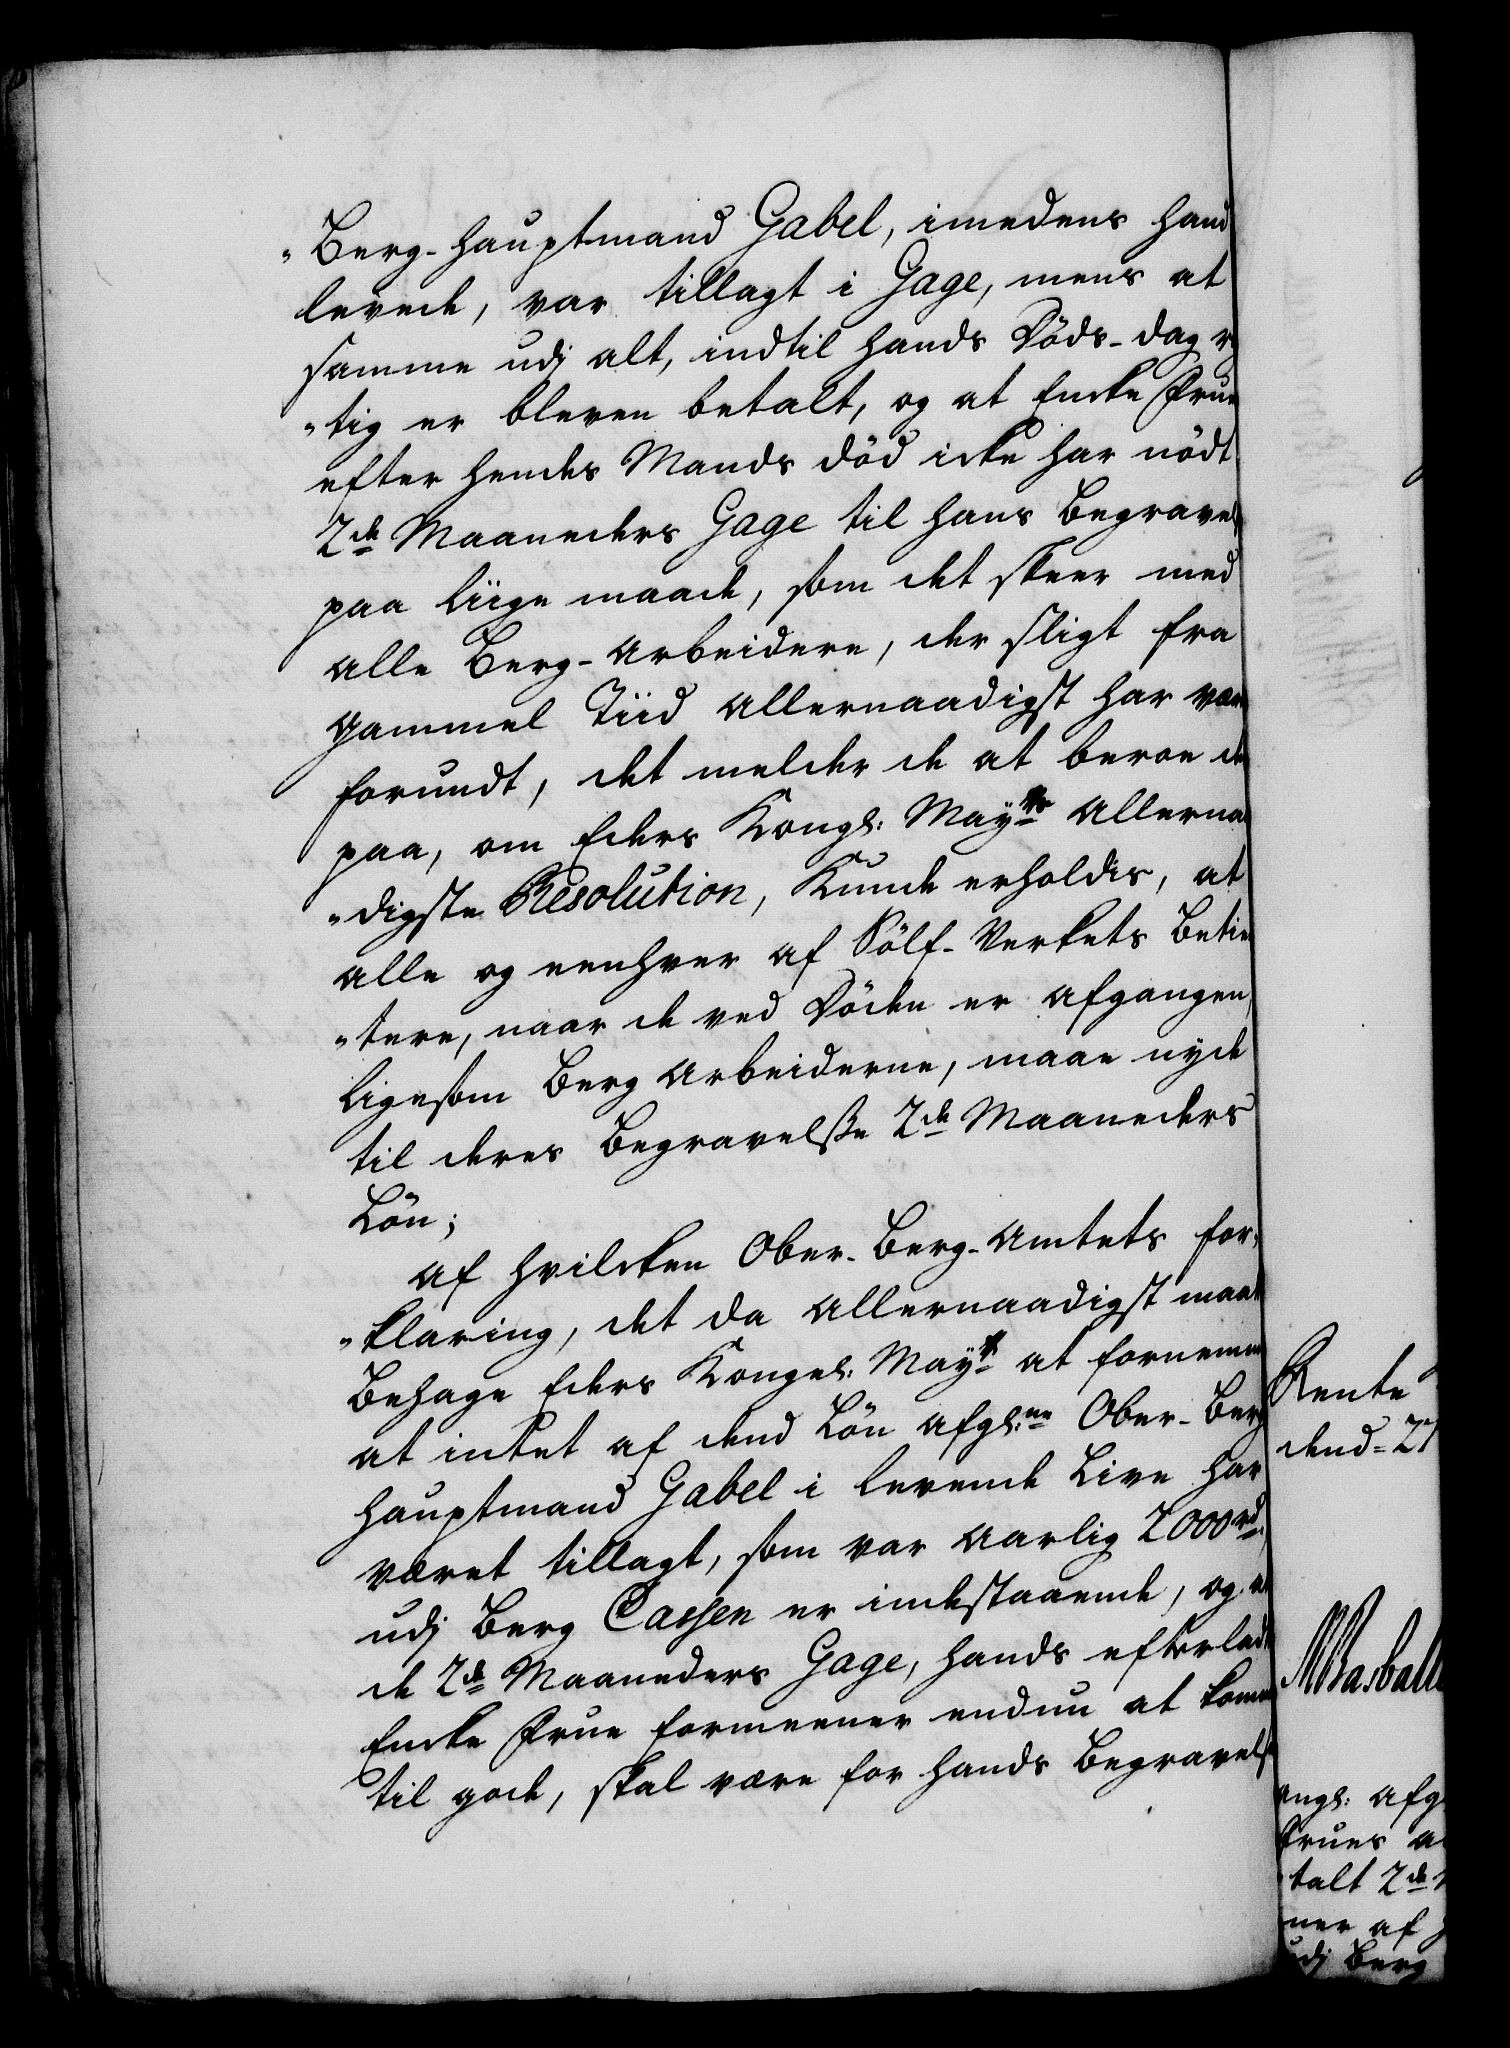 "Berg-Hauptmand Gabel, imedens hand
levede, var tillagt i Gage, mens at
samme udj alt, indtil hands Döds-dag r
"tig er bleven betalt, og at Encke Frue
efter hendes Mands död icke har nödt
2de Maaneders Gage til hans Begravels
paa liige maade, som det skeer med
alle Berg-Arbeidere, der sligt fra
gammel Tiid allernaadigst har vær
forundt, det melder de at beroe de
paa, om Eders Kongl: Mayts allernaa
"digste Resolution, Kunde erholdes, at
alle og eenhver af Sölf-Verkets Betien
"tere, naar de ved Döden er afgangen,
ligesom Berg Arbeiderne, maae nyde
til deres Begravelsse 2de Maaneders
Lön;
Af hvilcken Ober-Berg-Amtets for,
"klaring, det da allernaadigst maatte
Behage Eders Kongel: Mayt at fornemme
at intet af dend Lön afgl:ne Ober-Berg
Hauptmand Gabel i levende Live har
været tillagt, som var aarlig 2000 rd,
udj Berg Cassen er indestaaende, og at
de 2de Maaneders Gage, hands efterladte
Encke Frue formeener endnu at komme
til gode, skal være for hands Begravels
Rente
dend=27
ngl: afg
Frues a
talt 2de
ner af
udj Berg